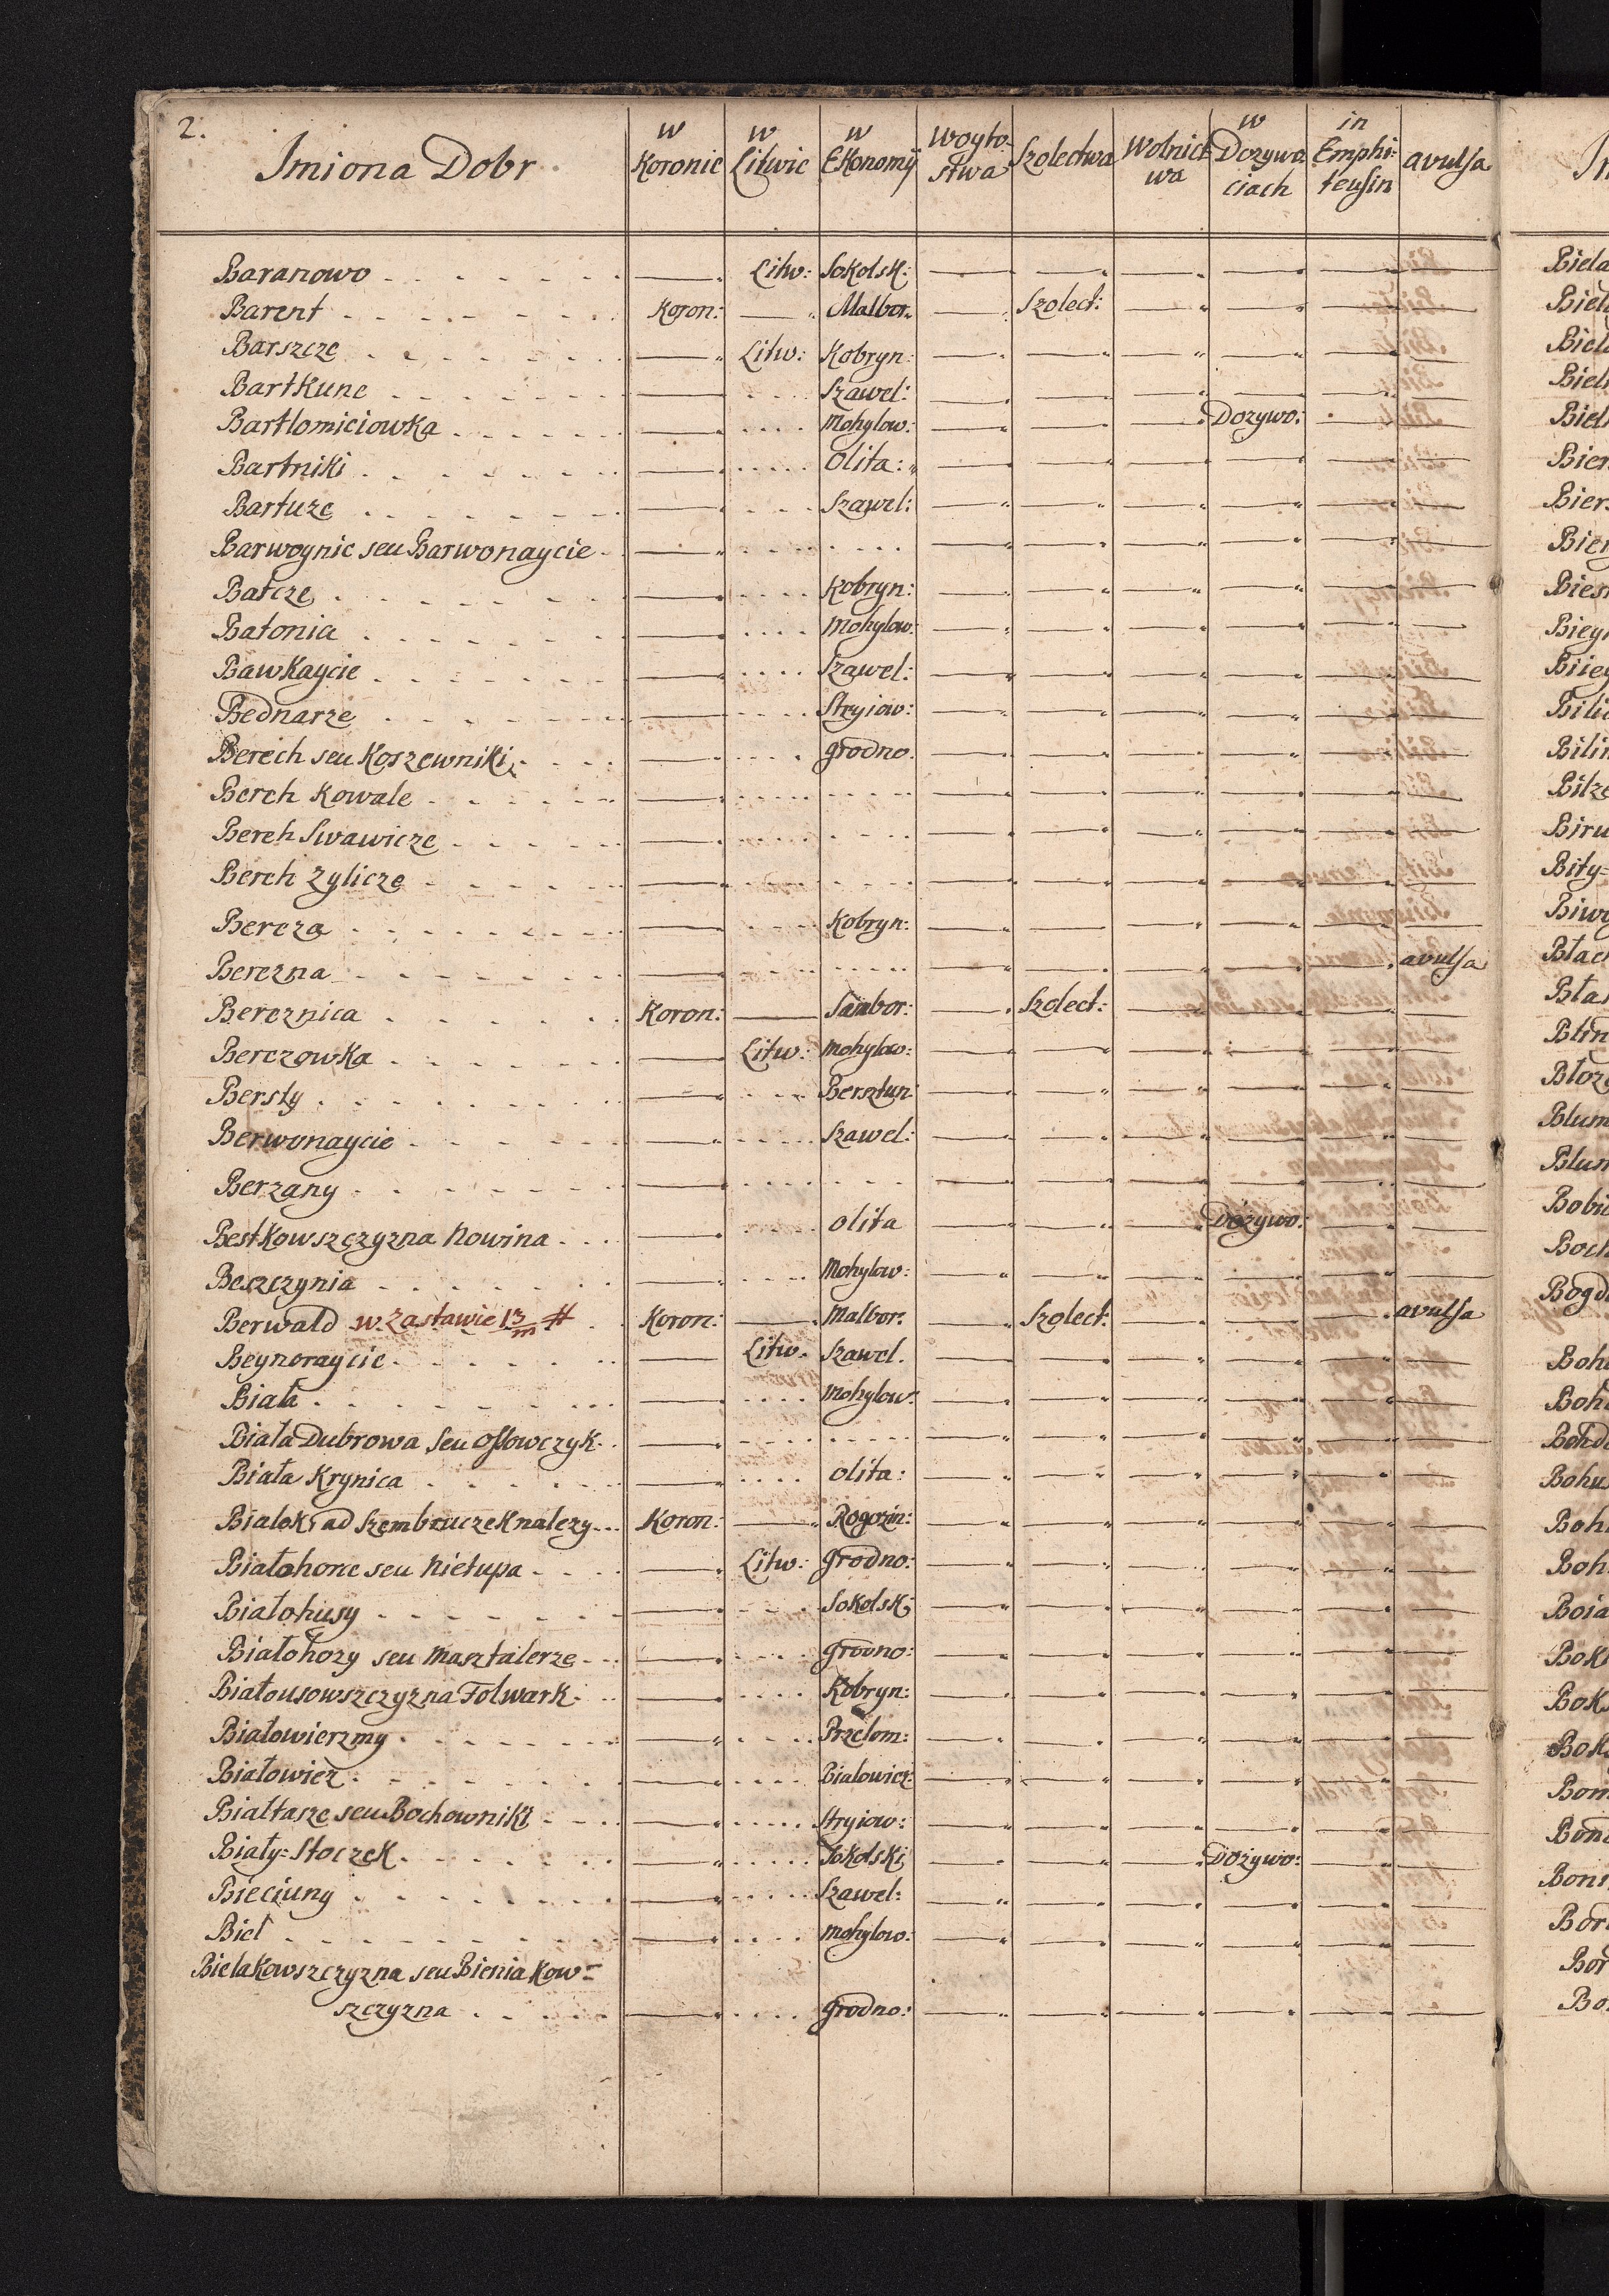 2.
Imiona Dobr
w Koronie
w Litwie
w EKonomij
Woyto-stwa
Szolectwa
Wolnictwa
w Dozywociach
in Emphi-teusin
avulsa
Baranowo - - - - - - Litw: SoKolsK:
Barent - - - - - - Koron: Malbor. Szolect:
Barszcze - - - - - - Litw: Kobryn:
BartKune - - - - - - Szawel:
BartlomiciowKa - - - - - - Mohylow: Dozywo:
BartniKi - - - - - - Olita:
Bartuze - - - - - - Szawel:
Barwoynie seu Barwonaycie
Batcze - - - - - - Kobryn:
Batonia - - - - - - Mohylow:
BawKaycie - - - - - - Szawel:
Bednarze - - - - - - Stryiow:
Berech seu KoszewniKi - - - - grodno.
Bereh Kowale - - - - - -
Bereh Swawicze - - - - - -
Bereh Zylicze - - - - - -
Bereza - - - - - - Kobryn:
Berezna - - - - - - avulsa
Bereznica - - - - - - Koron: Sambor: Szolect:
BerezowKa - - - - - - Litw: Mohylow:
Bersty - - - - - - Bersztun:
Berwonaycie - - - - - - Szawel:
Berzany - - - - - -
BestKowszczyzna Nowina - - - Olita Dożywo:
Beszczynia - - - - - - Mohylow:
Berwald w Zastawie 13/m # Koron: Malbor: Szolect: avulsa
Beynoraycie - - - - - - Litw. Szawel.
Biała - - - - - - Mohylow:
Biała Dubrowa seu OssowczyK
Biała Krynica - - - - - - Olita:
BialoKi ad SzembruczeK nalezy - - - Koron: Rogozin:
Białohone seu Nietupa - - - Litw: Grodno:
Białohusy - - - - - - SoKolsK:
Białohozy seu Masztalerze - - - grodno:
Białousowszczyzna FolwarK - - - Kobryn:
Białowierzmy - - - - - - Przelom:
Białowież - - - - - - Bialowiez:
Białtasze seu BochowniKi - - - Stryiow:
Biały=StoczeK - - - - - - SoKolsKi Dożywo:
Bieciuny - - - - - - Szawel:
Biel - - - - - - Mohylow:
BielaKowszczyzna seu BieniaKow=
szczyzna - - - - - - Grodno: